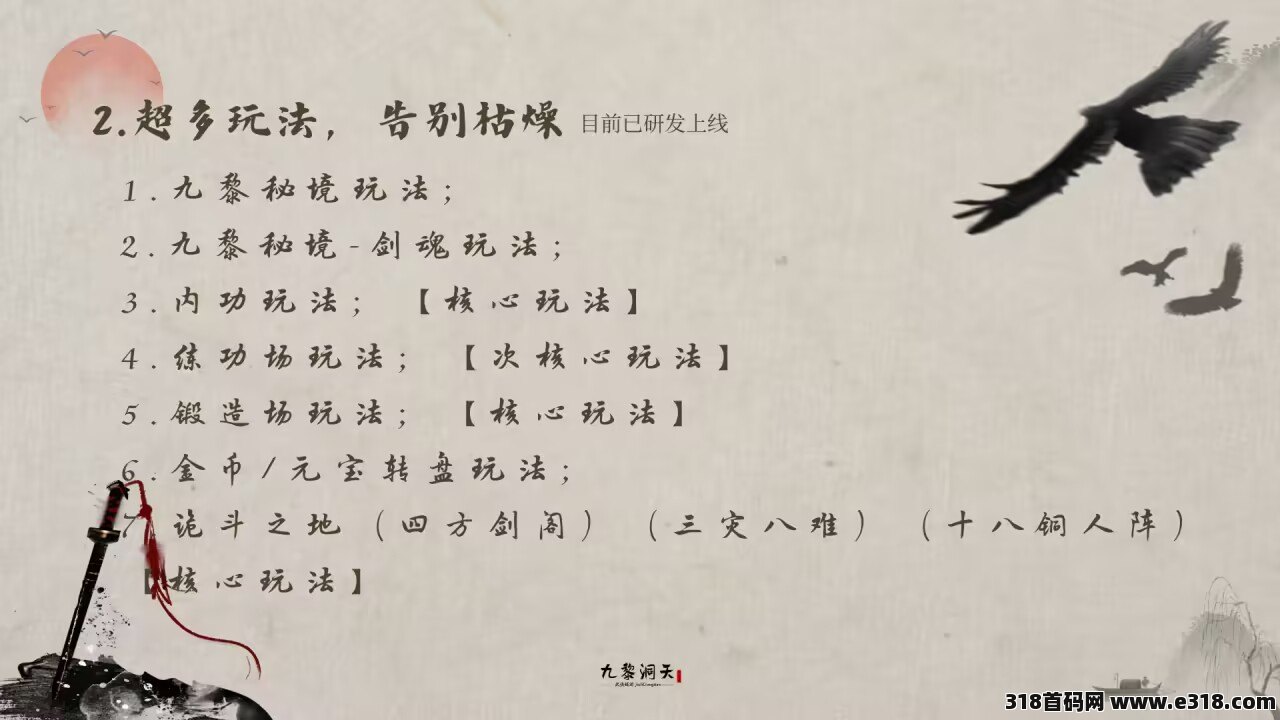 2.超多玩法，告别枯燥 目前已研发上线
1.九黎秘境玩法；
2.九黎秘境-剑魂玩法；
3.内功玩法； 【核心玩法】
4.练功场玩法； 【次核心玩法】
5.锻造场玩法； 【核心玩法】
6.金币/元宝转盘玩法；
7.诡斗之地（四方剑阁）（三灾八难）（十八铜人阵）
【核心玩法】
九黎洞天
318首码网 www.e318.com